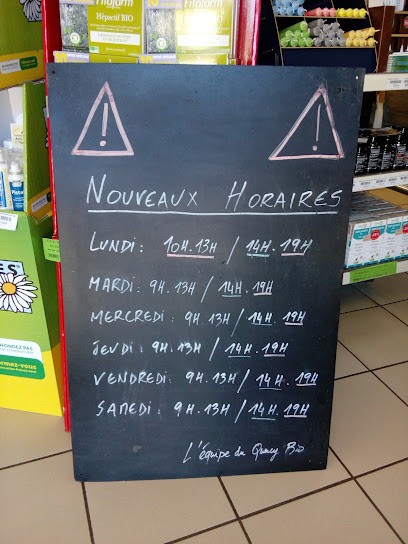 Fitoform
Hépactif BIO
!
!
NOUVEAUX HORAIRES
LUNDI: 10H.13H / 14H.19H
MARDI: 9H.13H / 14H.19H
MERCREDI: 9H.13H / 14H.19H
JEUDI: 9H.13H / 14H.19H
VENDREDI: 9H.13H / 14H.19H
SAMEDI: 9H.13H / 14H.19H
L'équipe du Quincy Bio